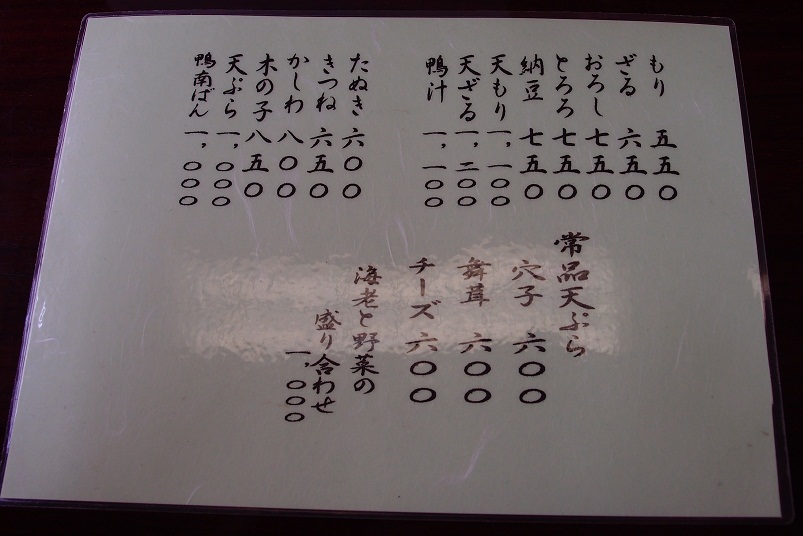 もり 五五〇
ざる 六五〇
おろし 七五〇
とろろ 七五〇
納豆 七五〇
天もり 一,一〇〇
天ざる 一,二〇〇
鴨汁 一,一〇〇
たぬき 六〇〇
きつね 六五〇
かしわ 八〇〇
木の子 八五〇
天ぷら 一,〇〇〇
鴨南ばん 一,〇〇〇
常品天ぷら
穴子 六〇〇
舞茸 六〇〇
チーズ 六〇〇
海老と野菜の
盛り合わせ
一,〇〇〇